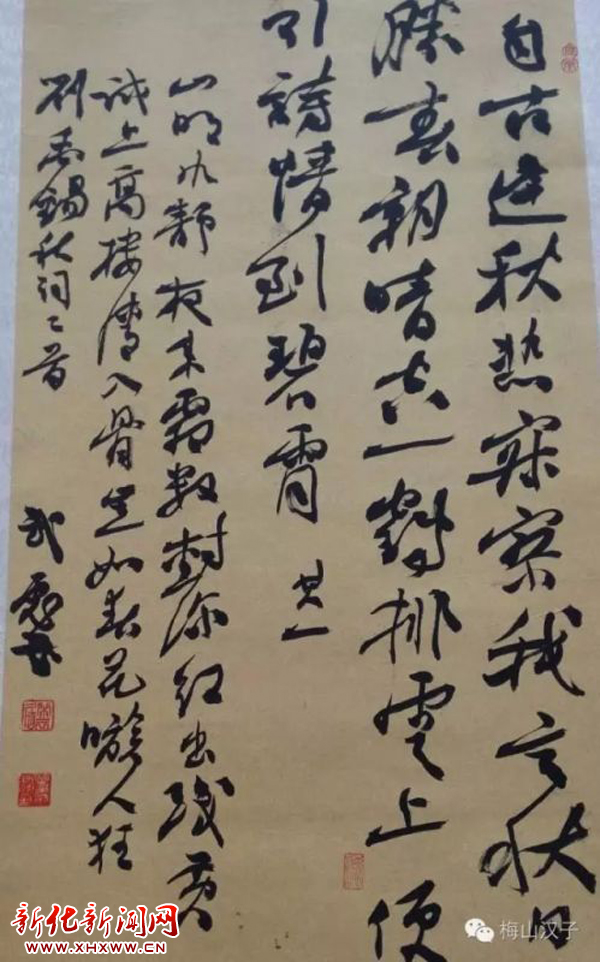 自古逢秋悲寂寥我言秋日
勝春朝晴空一鶴排雲上便
引詩情到碧霄 其一
山明水静夜来霜数樹深红出浅黄
试上高楼清入骨岂如春花嗾人狂
劉禹錫秋词二首
新化新闻网
WWW.XHXWW.CN
梅山汉子